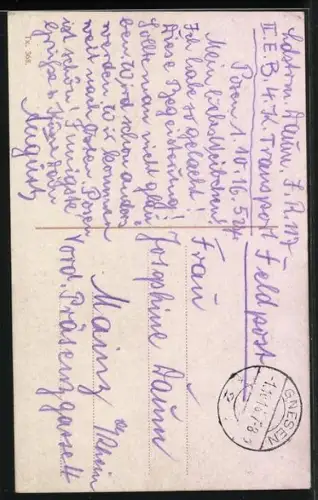 Ldstrm. Daum. I. R. 117
II. E. B. 4. K. Transport
Feldpost
Posen 1.10.16. 5 Uhr
Mein liebes Weibchen!
Ich habe so gelacht!
Diese Begeisterung!
Sollte man nicht glau-
ben. Wird schon anders
werden. Wo wir kommen
weit nach Osten. Posen
ist schön! Innigste
Grüße u. Küsse Dein
August
Frau
Josephine Daum
Mainz
a/Rhein
Vord. Präsenzgasse 4
GNESEN
1.10.16.7-8
Tx. 366.